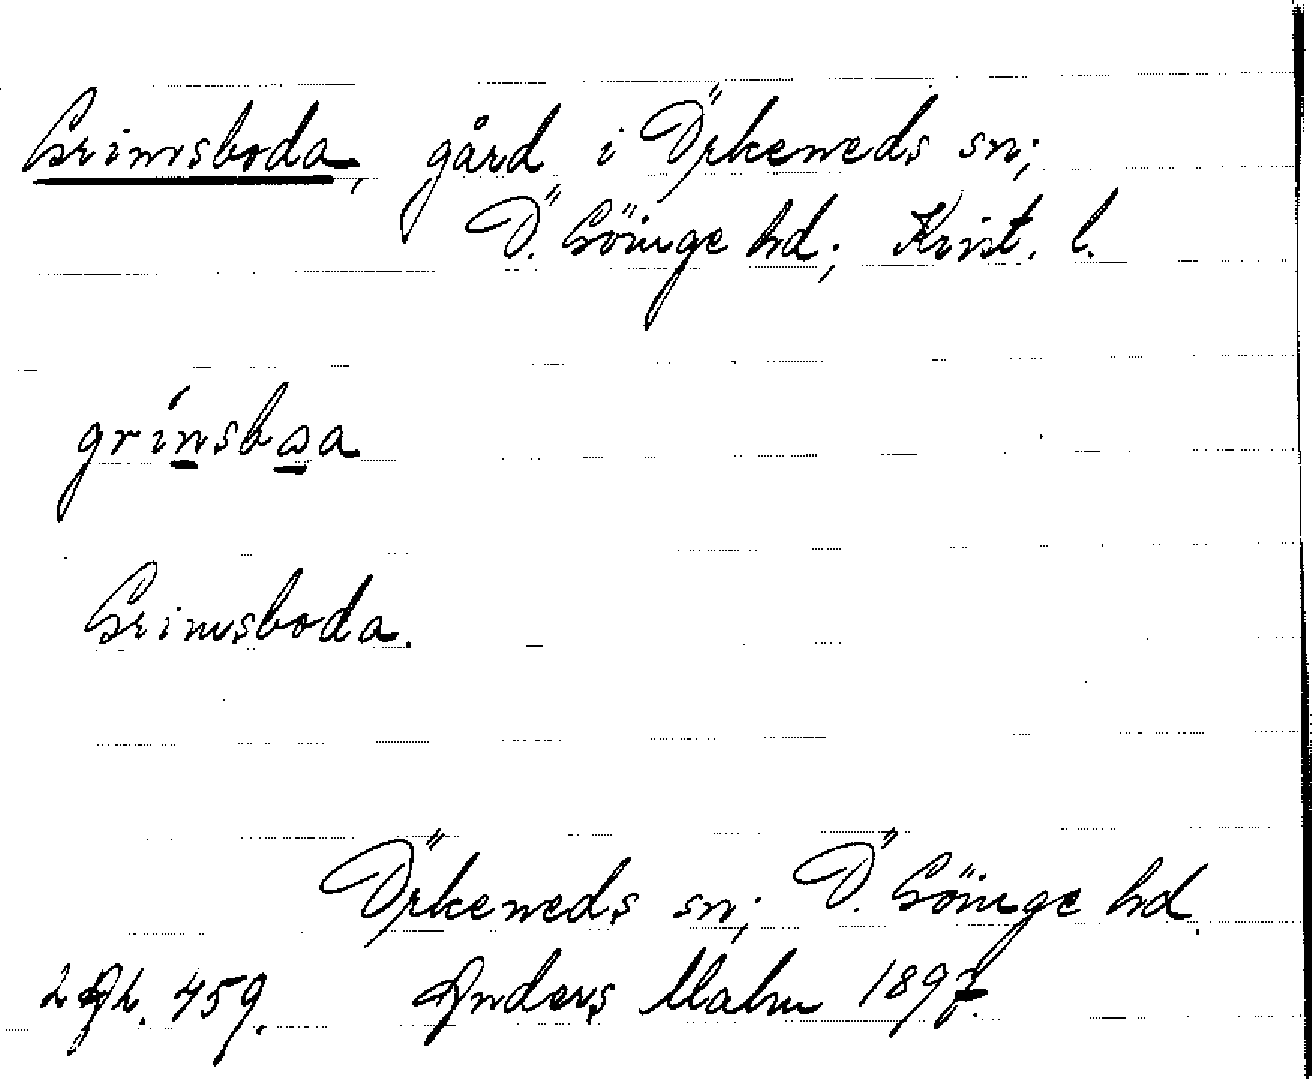 Grimsboda, gård i Örkeneds sn;
Ö. Göinge hd; Krist. l.
grinsbɷa
Grimsboda.
Örkeneds sn; Ö. Göinge hd.
459. Anders Malm 1897.